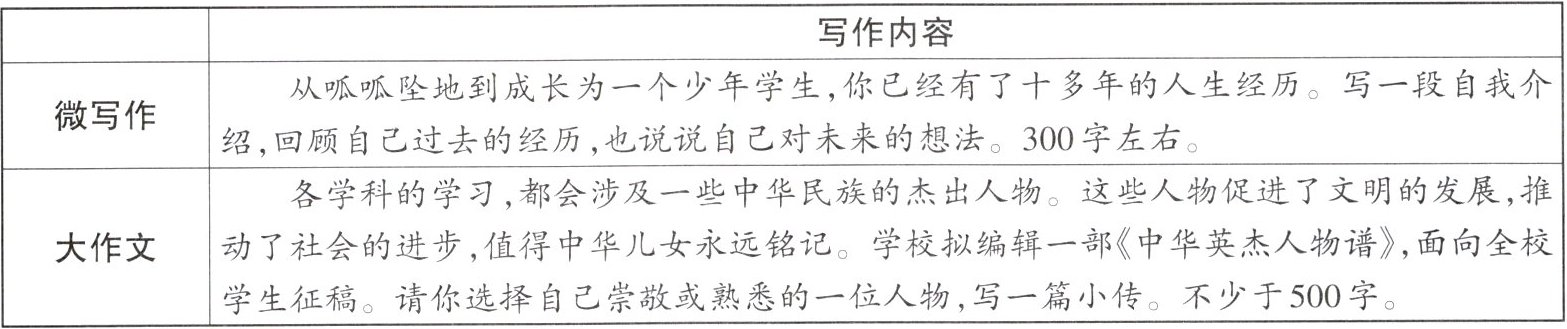 写作内容
微写作
从呱呱坠地到成长为一个少年学生,你已经有了十多年的人生经历。写一段自我介
绍,回顾自己过去的经历,也说说自己对未来的想法。300字左右。
大作文
各学科的学习,都会涉及一些中华民族的杰出人物。这些人物促进了文明的发展,推
动了社会的进步,值得中华儿女永远铭记。学校拟编辑一部《中华英杰人物谱》,面向全校
学生征稿。请你选择自己崇敬或熟悉的一位人物,写一篇小传。不少于500字。